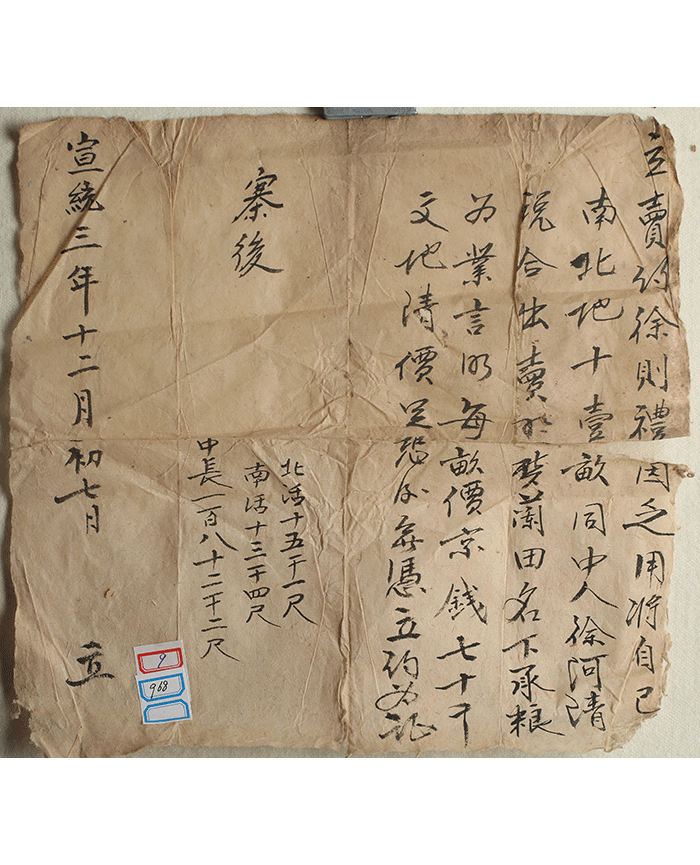 立賣約徐則禮因乏用將自己
南北地十壹畝同中人徐河清
說合出賣於 蘭田名下承粮
为業言明每畝價京錢七十千
文地清價足恐後無憑立約为証
寨後
北活十五干一尺
南活十三干四尺
中長一百八十二干二尺
宣統三年十二月初七日 立
9
968